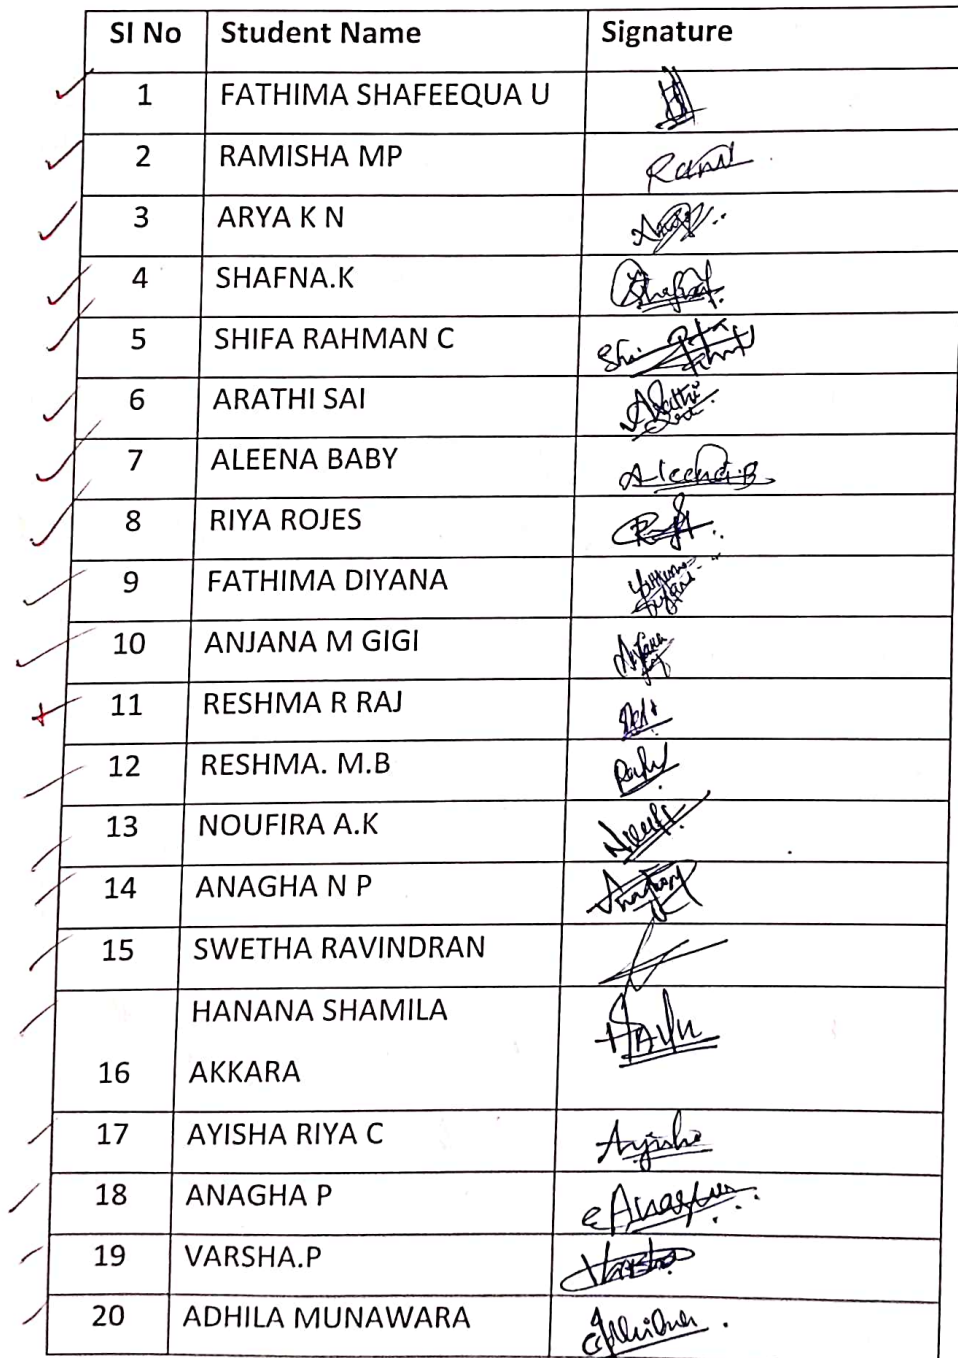 Sl No Student Name Signature
1 FATHIMA SHAFEEQUA U
2 RAMISHA MP
3 ARYA K N
4 SHAFNA.K
5 SHIFA RAHMAN C
6 ARATHI SAI Arathi
7 ALEENA BABY Aleena.B
8 RIYA ROJES
9 FATHIMA DIYANA
10 ANJANA M GIGI
11 RESHMA R RAJ
12 RESHMA. M.B
13 NOUFIRA A.K
14 ANAGHA N P
15 SWETHA RAVINDRAN
HANANA SHAMILA
16 AKKARA
17 AYISHA RIYA C Ayisha
18 ANAGHA P
19 VARSHA.P Varsha
20 ADHILA MUNAWARA